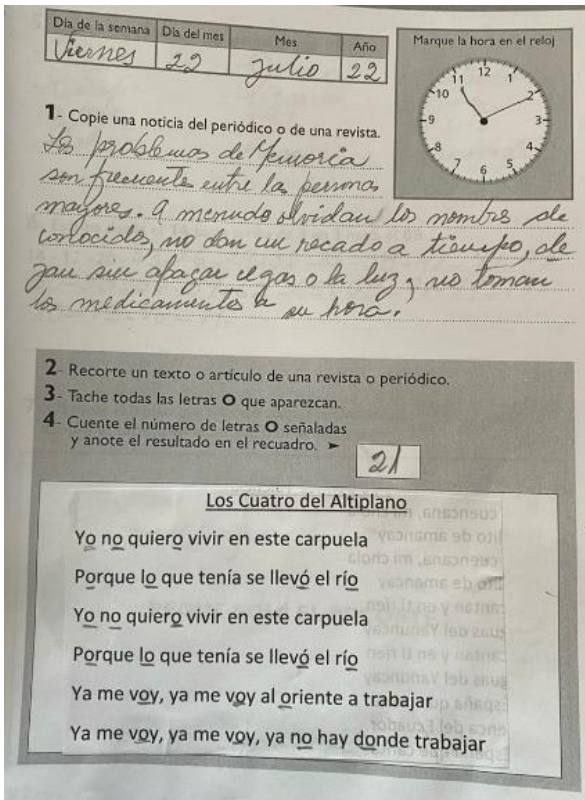 Día de la semana Día del mes Mes Año
Viernes 22 Julio 22
Marque la hora en el reloj
12
11 1
10 2
9 3
8 4
7 5
6
1- Copie una noticia del periódico o de una revista.
Los problemas de Memoria
son frecuente entre las personas
mayores. a menudo olvidan los nombres de
conocidos, no dan un recado a tiempo, de
jan sin apagar el gas o la luz y no toman
los medicamentos a su hora.
2- Recorte un texto o artículo de una revista o periódico.
3- Tache todas las letras O que aparezcan.
4- Cuente el número de letras O señaladas
y anote el resultado en el recuadro. ➤
21
Los Cuatro del Altiplano
Yo no quiero vivir en este carpuela
Porque lo que tenía se llevó el río
Yo no quiero vivir en este carpuela
Porque lo que tenía se llevó el río
Ya me voy, ya me voy al oriente a trabajar
Ya me voy, ya me voy, ya no hay donde trabajar